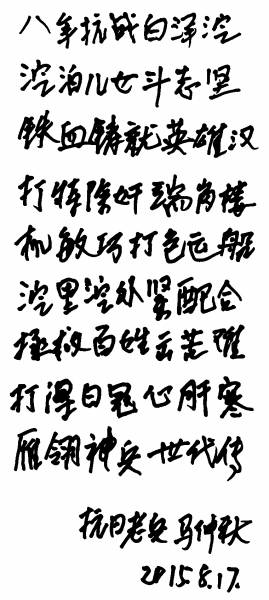 八年抗战白洋淀
淀泊儿女斗志坚
铁血铸就英雄汉
打特除奸端岗楼
机敏巧打包运船
淀里淀外紧配合
拯救百姓出苦难
打得日寇心肝寒
雁翎神兵世代传
抗日老兵马仲秋
2015.8.17.